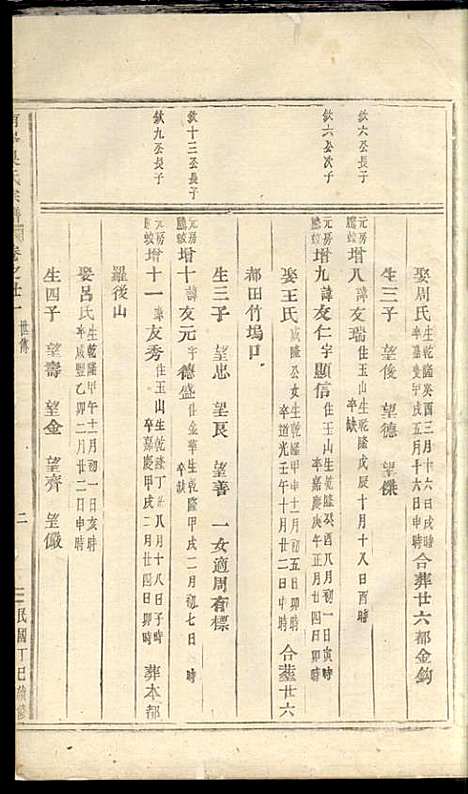 娶周氏 生乾隆癸酉三月十六日戌時 卒嘉慶癸酉五月十六日申時 合葬廿六都金鈎
生三子 望俊 望德 望傑
欽六公長子
元房增八 諱友瑞 住玉山生乾隆戊辰十月十八日酉時 卒缺
欽六公次子
元房增九 諱友仁字顯信 住玉山生乾隆癸酉八月初一日寅時 卒嘉慶庚午正月廿四日卯時
娶王氏 咸隆公女生乾隆甲申十一月初五日卯時 卒道光壬午十月廿二日申時 合葬廿六
都田竹塢口
生三子 望忠 望良 望善 一女適周有標
欽十三公長子
元房增十 諱友元字德盛 住金華生乾隆甲戌二月初七日 時 卒缺
欽九公長子
元房增十一 諱友秀 住玉山生乾隆丁 八月十八日子時 卒嘉慶甲戌二月廿四日卯時 葬本都
羅後山
娶呂氏 生乾隆甲午十二月初一日亥時 卒咸豐乙卯二月廿二日申時
生四子 望壽 望金 望齊 望儼
氏宗譜 卷之廿一 世傳 二 民國丁巳續修